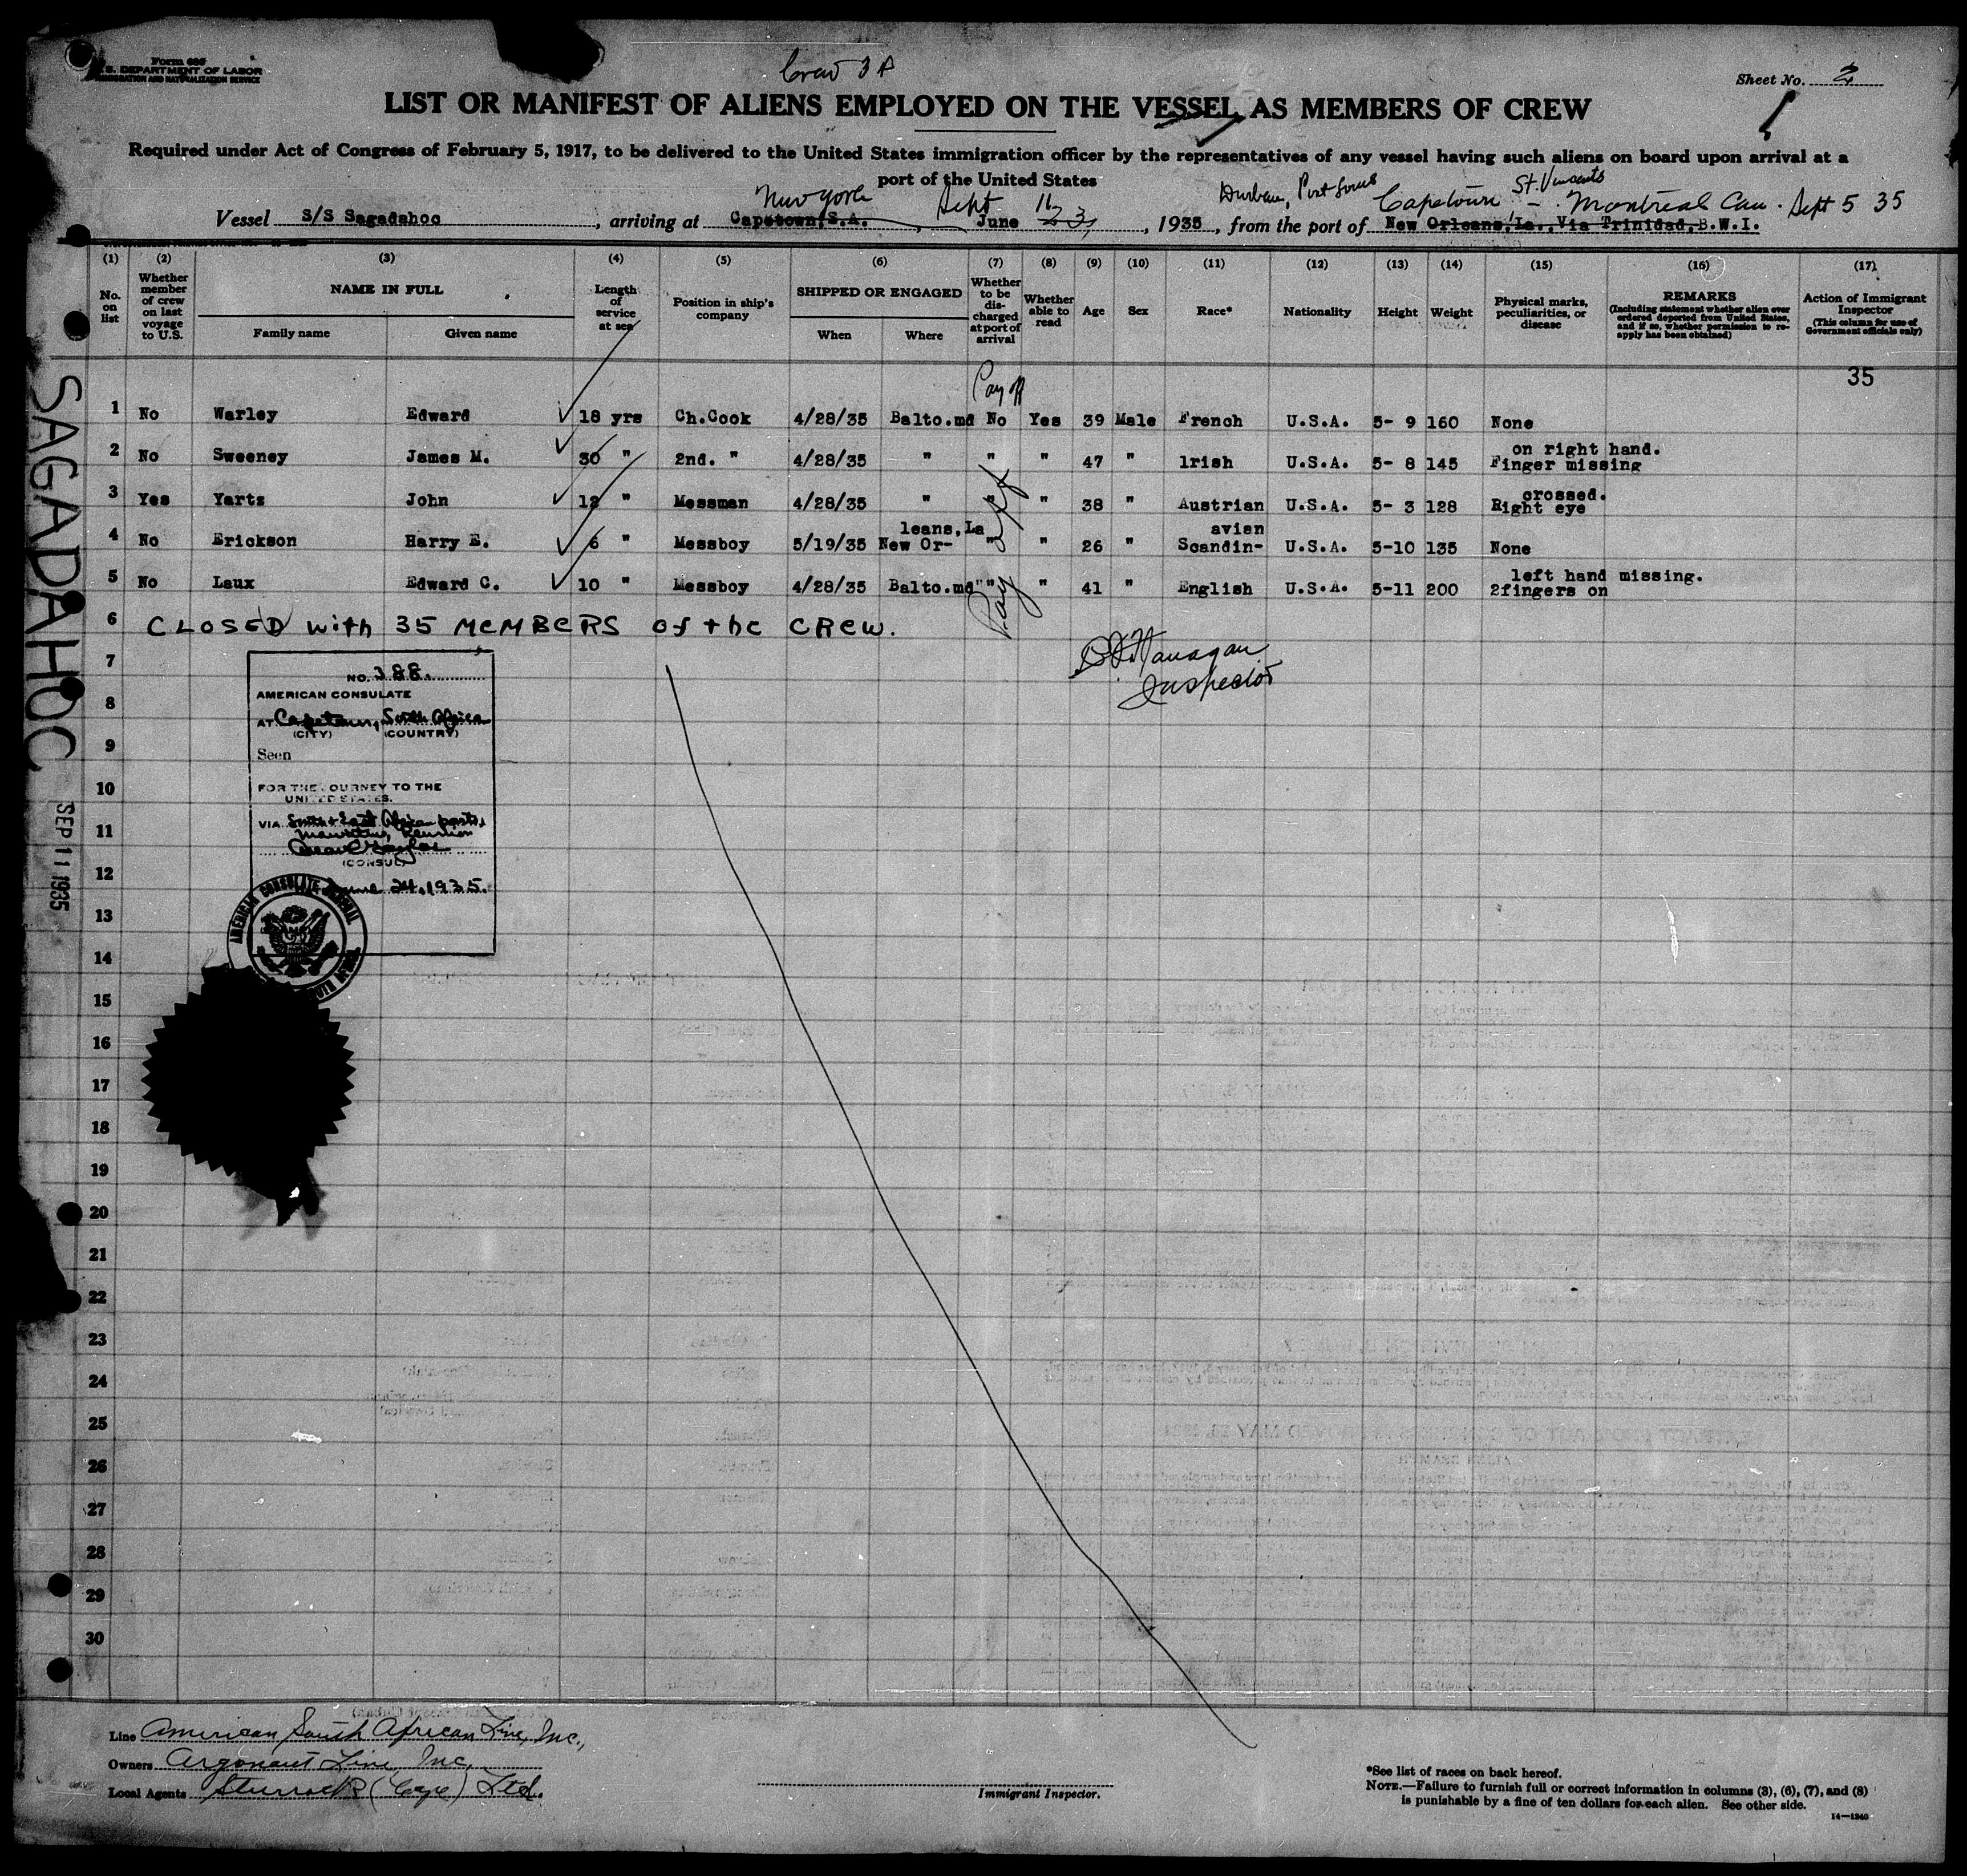 Form 685
U.S. DEPARTMENT OF LABOR
IMMIGRATION AND NATURALIZATION SERVICE
Crew 3 A
Sheet No. 2
LIST OR MANIFEST OF ALIENS EMPLOYED ON THE VESSEL AS MEMBERS OF CREW
Required under Act of Congress of February 5, 1917, to be delivered to the United States immigration officer by the representatives of any vessel having such aliens on board upon arrival at a
port of the United States
New York Sept 11 Durban, Port Louis Capetown - St. Vincents Montreal Can. Sept 5 35
Vessel S/S Sagadahoc, arriving at Capetown, S.A., June 23, 1935, from the port of New Orleans, La., Via Trinidad, B.W.I.
(1) (2) (3) (4) (5) (6) (7) (8) (9) (10) (11) (12) (13) (14) (15) (16) (17)
No. on list
Whether member of crew on last voyage to U.S.
NAME IN FULL
Family name Given name
Length of service at sea
Position in ship's company
SHIPPED OR ENGAGED
When Where
Whether to be discharged at port of arrival
Whether able to read
Age
Sex
Race*
Nationality
Height
Weight
Physical marks, peculiarities, or disease
REMARKS
(Including statement whether alien ever ordered deported from United States, and if so, whether permission to reapply has been obtained)
Action of Immigrant Inspector
(This column for use of Government officials only)
35
Pay off
1 No Warley Edward 18 yrs Ch.Cook 4/28/35 Balto.md No Yes 39 Male French U.S.A. 5- 9 160 None
on right hand.
2 No Sweeney James M. 30 " 2nd. " 4/28/35 " " " 47 " Irish U.S.A. 5- 8 145 Finger missing
crossed.
3 Yes Yarts John 12 " Messman 4/28/35 " " " 38 " Austrian U.S.A. 5- 3 128 Right eye
leans, La avian
4 No Erickson Harry E. 6 " Messboy 5/19/35 New Or- " " 26 " Scandin- U.S.A. 5-10 135 None
left hand missing.
5 No Laux Edward C. 10 " Messboy 4/28/35 Balto.md " " " 41 " English U.S.A. 5-11 200 2fingers on
Pay off
6 CLOSED with 35 MEMBERS of the CREW.
Inspector
7
8
9
10
11
12
13
14
15
16
17
18
19
20
21
22
23
24
25
26
27
28
29
30
NO. 388.
AMERICAN CONSULATE
AT Capetown, South Africa
(CITY) (COUNTRY)
Seen
FOR THE JOURNEY TO THE
UNITED STATES.
VIA South & East African ports,
Mauritius, Reunion
(CONSUL)
June 24, 1935.
AMERICAN CONSULATE GENERAL
SAGADAHOC
SEP 11 1935
Line American South African Line, Inc.,
Owners Argonaut Line Inc.
Local Agents Sturrock (Cape) Ltd.
Immigrant Inspector.
*See list of races on back hereof.
NOTE.—Failure to furnish full or correct information in columns (3), (6), (7), and (8)
is punishable by a fine of ten dollars for each alien. See other side.
14—1240